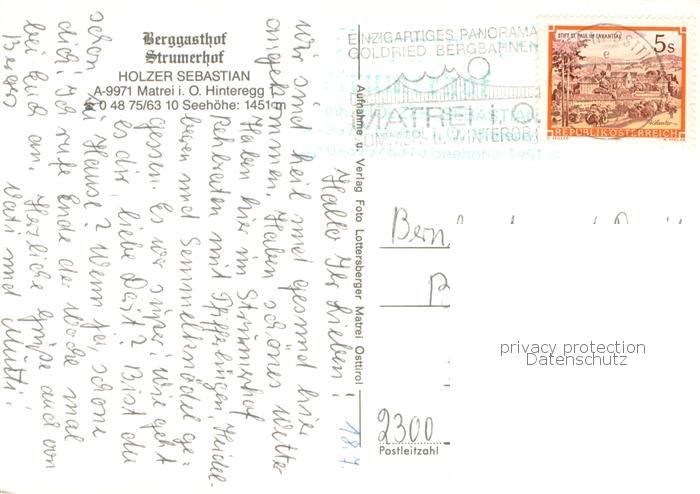 Berggasthof
Strumerhof
HOLZER SEBASTIAN
A-9971 Matrei i. O. Hinteregg 1
0 48 75/63 10 Seehöhe: 1451 m
EINZIGARTIGES PANORAMA
GOLDRIED BERGBAHNEN
MATREI i. O.
SOMMER- u. WINTERORT
STIFT ST. PAUL IM LAVANTTAL
5 S
REPUBLIK ÖSTERREICH
Aufnahme u. Verlag Foto Lottersberger Matrei Osttirol
18.7.
Hallo Ihr Lieben!
Wir sind heil und gesund hier
angekommen. Haben schönes Wetter
Haben hier im Strumerhof
Rehbraten mit Pfifferlingen, Heidel-
beeren und Semmelknödel ge-
gessen. Es war super! Wie geht
es dir, liebe Dörit? Bist du
schon zu Hause? Wenn ja, schone
dich! Ich rufe Ende der Woche mal
bei Euch an. Herzliche Grüße auch von
Vati und Mutti!
Bern
2300
Postleitzahl
privacy protection
Datenschutz